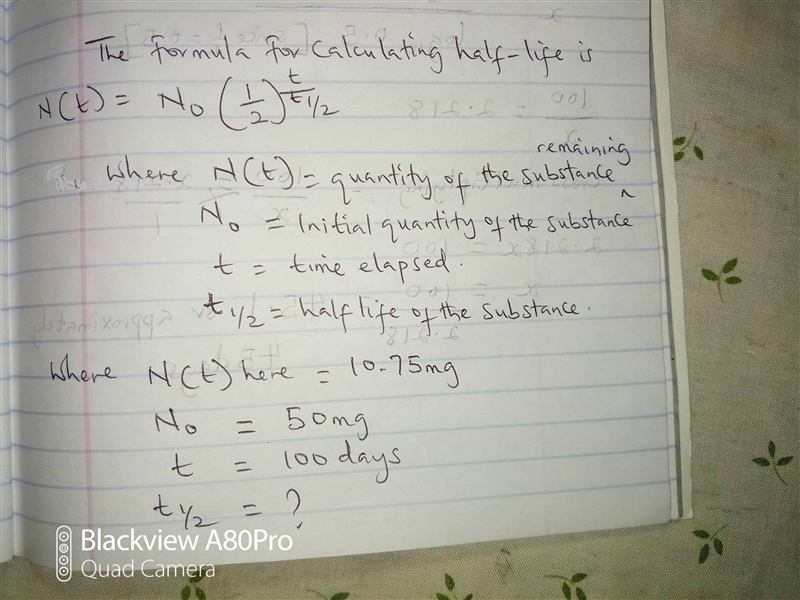 The formula for calculating half-life is
N(t) = N₀ (1/2)^(t/t1/2)
remaining
Where N(t) = quantity of the substance ^
N₀ = Initial quantity of the substance
t = time elapsed.
t 1/2 = half life of the substance.
Where N(t) here = 10.75mg
N₀ = 50mg
t = 100 days
t 1/2 = ?
Blackview A80Pro
Quad Camera